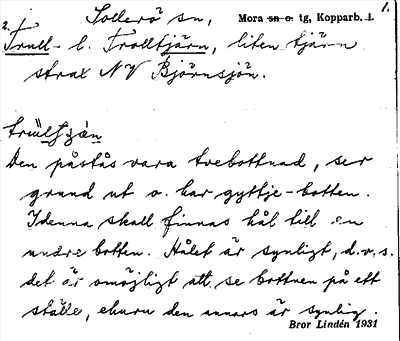 1.
Sollerö sn, Mora sn o. tg, Kopparb. l.
2. Trull- l. Trolltjärn, liten tjärn
strax NV Björnsjön.
Den påstås vara tvebottnad, ser
grund ut o. har gyttje-botten.
I denna skall finnas hål till en
undre botten. Hålet är synligt, d.v.s.
det är omöjligt att se bottnen på ett
ställe, ehuru den annars är synlig.
Bror Lindén 1931